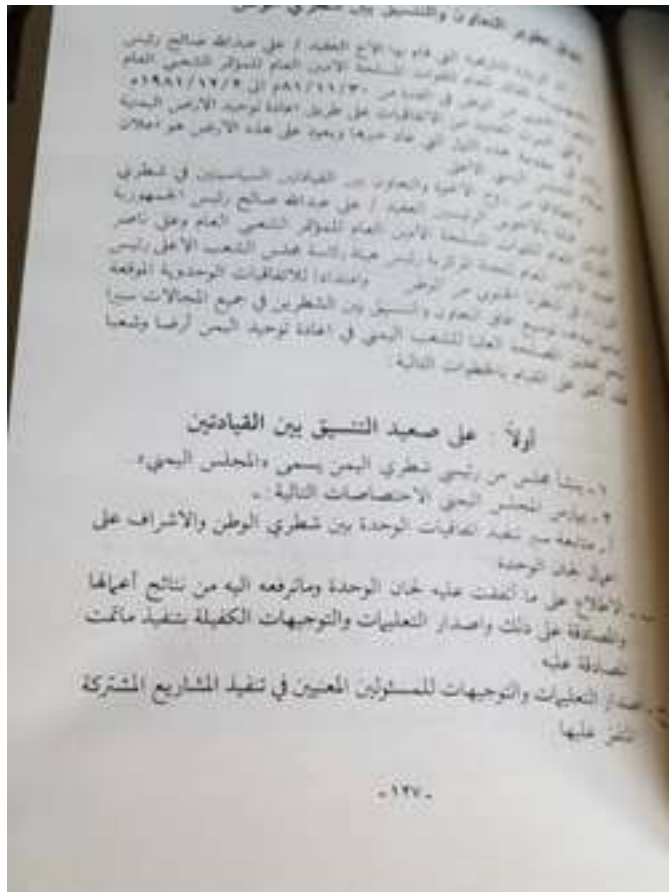 اتفاق تطوير التعاون والتنسيق بين شطري الوطن
التاريخية التي قام بها الأخ العقيد / علي عبدالله صالح رئيس
القائد العام للقوات المسلحة الأمين العام للمؤتمر الشعبي العام
من الوطن في الفترة من ٨١/١١/٣٠م الى ١٩٨١/١٢/٢م
من الاتفاقيات على طريق اعادة توحيد الأرض اليمنية
وكان في مقدمة هذه ويعود على هذه الأرض هو اعلان
المجلس اليمني الأعلى
من روح الأخوة والتعاون بين القيادتين السياسيتين في شطري
العقيد / علي عبدالله صالح رئيس الجمهورية
القائد العام للقوات المسلحة الأمين العام للمؤتمر الشعبي العام وعلي ناصر
محمد الأمين العام للجنة المركزية رئيس هيئة رئاسة مجلس الشعب الأعلى رئيس
الوزراء في الشطر الجنوبي من الوطن وامتدادا للاتفاقيات الوحدوية الموقعة
بهدف توسيع آفاق التعاون والتنسيق بين الشطرين في جميع المجالات سيرا
نحو تحقيق المصلحة العليا للشعب اليمني في اعادة توحيد اليمن أرضا وشعبا
فقد اتفق على القيام بالخطوات التالية :
أولاً : على صعيد التنسيق بين القيادتين
١ - ينشأ مجلس من رئيسي شطري اليمن يسمى «المجلس اليمني» .
٢ - يمارس المجلس اليمني الاختصاصات التالية : -
أ - متابعة سير تنفيذ اتفاقيات الوحدة بين شطري الوطن والاشراف على
أعمال لجان الوحدة
ب - الاطلاع على ما اتفقت عليه لجان الوحدة وماترفعه اليه من نتائج أعمالها
والمصادقة على ذلك واصدار التعليمات والتوجيهات الكفيلة بتنفيذ ماتمت
المصادقة عليه
جـ - اصدار التعليمات والتوجيهات للمسئولين المعنيين في تنفيذ المشاريع المشتركة
المتفق عليها
- ١٢٧ -